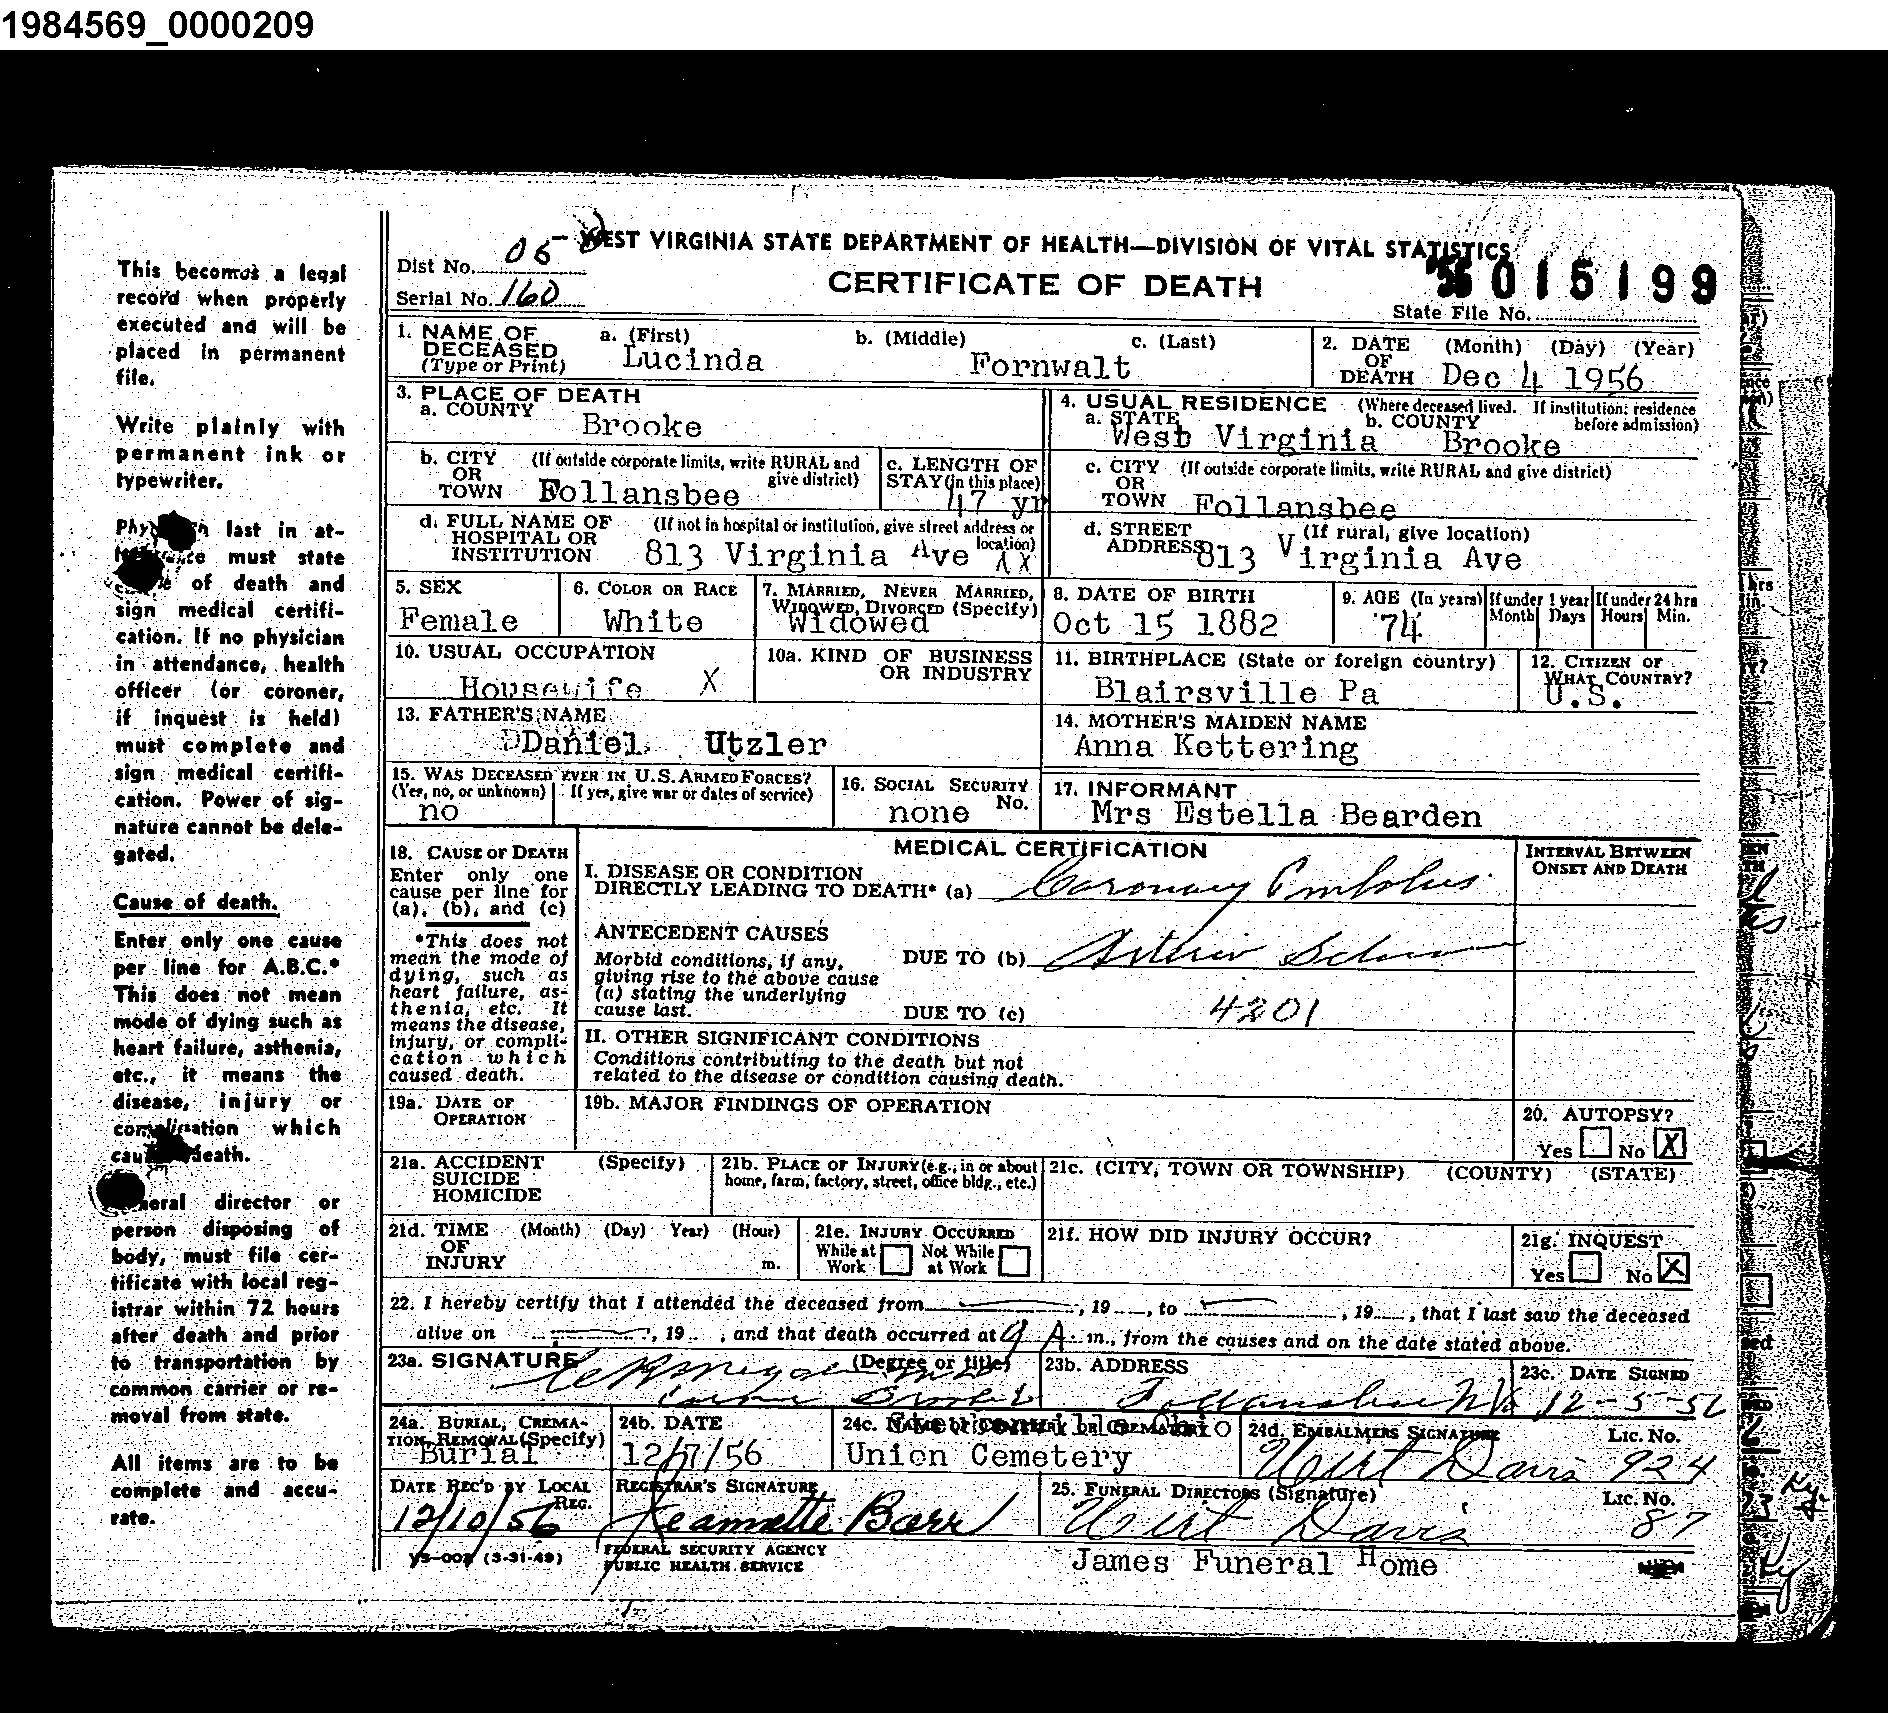 1984569_0000209
This becomes a legal
record when properly
executed and will be
placed in permanent
file.
Write plainly with
permanent ink or
typewriter.
last in at-
must state
of death and
sign medical certifi-
cation. If no physician
in attendance, health
officer (or coroner,
if inquest is held)
must complete and
sign medical certifi-
cation. Power of sig-
nature cannot be dele-
gated.
Cause of death.
Enter only one cause
per line for A.B.C.*
This does not mean
mode of dying such as
heart failure, asthenia,
etc., it means the
disease, injury or
complication which
death.
director or
person disposing of
body, must file cer-
tificate with local reg-
istrar within 72 hours
after death and prior
to transportation by
common carrier or re-
moval from state.
All items are to be
complete and accu-
rate.
WEST VIRGINIA STATE DEPARTMENT OF HEALTH—DIVISION OF VITAL STATISTICS
Dist No. 05
CERTIFICATE OF DEATH
56 015199
Serial No. 160
State File No.
1. NAME OF DECEASED (Type or Print) a. (First) b. (Middle) c. (Last)
Lucinda Fornwalt
2. DATE OF DEATH (Month) (Day) (Year)
Dec 4 1956
3. PLACE OF DEATH
a. COUNTY Brooke
4. USUAL RESIDENCE (Where deceased lived. If institution: residence before admission)
a. STATE West Virginia b. COUNTY Brooke
b. CITY OR TOWN (If outside corporate limits, write RURAL and give district) Follansbee
c. LENGTH OF STAY (in this place) 47 yr
c. CITY OR TOWN (If outside corporate limits, write RURAL and give district) Follansbee
d. FULL NAME OF HOSPITAL OR INSTITUTION (If not in hospital or institution, give street address or location) 813 Virginia Ave
d. STREET ADDRESS (If rural, give location) 813 Virginia Ave
5. SEX Female
6. COLOR OR RACE White
7. MARRIED, NEVER MARRIED, WIDOWED, DIVORCED (Specify) Widowed
8. DATE OF BIRTH Oct 15 1882
9. AGE (In years) 74 If under 1 year Month Days If under 24 hrs Hours Min.
10. USUAL OCCUPATION Housewife X
10a. KIND OF BUSINESS OR INDUSTRY
11. BIRTHPLACE (State or foreign country) Blairsville Pa
12. CITIZEN OF WHAT COUNTRY? U.S.
13. FATHER'S NAME Daniel Utzler
14. MOTHER'S MAIDEN NAME Anna Kettering
15. WAS DECEASED EVER IN U.S. ARMED FORCES?
(Yes, no, or unknown) If yes, give war or dates of service) no
16. SOCIAL SECURITY No. none
17. INFORMANT Mrs Estella Bearden
18. CAUSE OF DEATH
Enter only one
cause per line for
(a), (b), and (c)
*This does not
mean the mode of
dying, such as
heart failure, as-
thenia, etc. It
means the disease,
injury, or compli-
cation which
caused death.
MEDICAL CERTIFICATION
INTERVAL BETWEEN ONSET AND DEATH
I. DISEASE OR CONDITION
DIRECTLY LEADING TO DEATH* (a) Coronary Embolus
ANTECEDENT CAUSES
Morbid conditions, if any,
giving rise to the above cause
(a) stating the underlying
cause last.
DUE TO (b)
DUE TO (c) 4201
II. OTHER SIGNIFICANT CONDITIONS
Conditions contributing to the death but not
related to the disease or condition causing death.
19a. DATE OF OPERATION
19b. MAJOR FINDINGS OF OPERATION
20. AUTOPSY?
Yes No X
21a. ACCIDENT SUICIDE HOMICIDE (Specify)
21b. PLACE OF INJURY (e.g., in or about home, farm, factory, street, office bldg., etc.)
21c. (CITY, TOWN OR TOWNSHIP) (COUNTY) (STATE)
21d. TIME OF INJURY (Month) (Day) Year) (Hour) m.
21e. INJURY OCCURRED
While at Work Not While at Work
21f. HOW DID INJURY OCCUR?
21g. INQUEST
Yes No X
22. I hereby certify that I attended the deceased from , 19 , to , 19 , that I last saw the deceased
alive on , 19 , and that death occurred at 9 A. m., from the causes and on the date stated above.
23a. SIGNATURE (Degree or title)
23b. ADDRESS Follansbee W Va
23c. DATE SIGNED 12-5-56
24a. BURIAL, CREMATION, REMOVAL (Specify) Burial
24b. DATE 12/7/56
24c. NAME OF CEMETERY OR CREMATORY Steubenville Ohio
Union Cemetery
24d. EMBALMERS SIGNATURE Wirt Davis Lic. No. 924
DATE REC'D BY LOCAL REG. 12/10/56
REGISTRAR'S SIGNATURE Jeannette Barr
25. FUNERAL DIRECTORS (Signature) Wirt Davis Lic. No. 87
VS-002 (3-31-49)
FEDERAL SECURITY AGENCY
PUBLIC HEALTH SERVICE
James Funeral Home